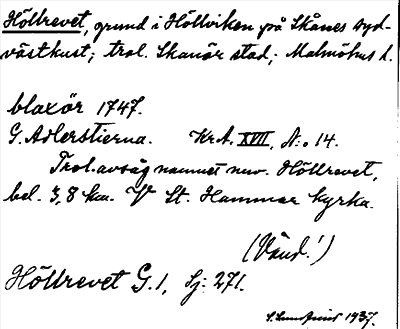 Höllrevet, grund i Höllviken på Skånes syd-
västkust; trol. Skanör stad; Malmöhus l.
blaxör 1747.
G. Adlerstierna. Kr.A. XVII, N:o 14.
Trol. avsåg namnet nuv. Höllrevet,
bel. 3,8 km. V St. Hammar kyrka.
(Vänd!)
Höllrevet G.1, Sj: 271.
1937.